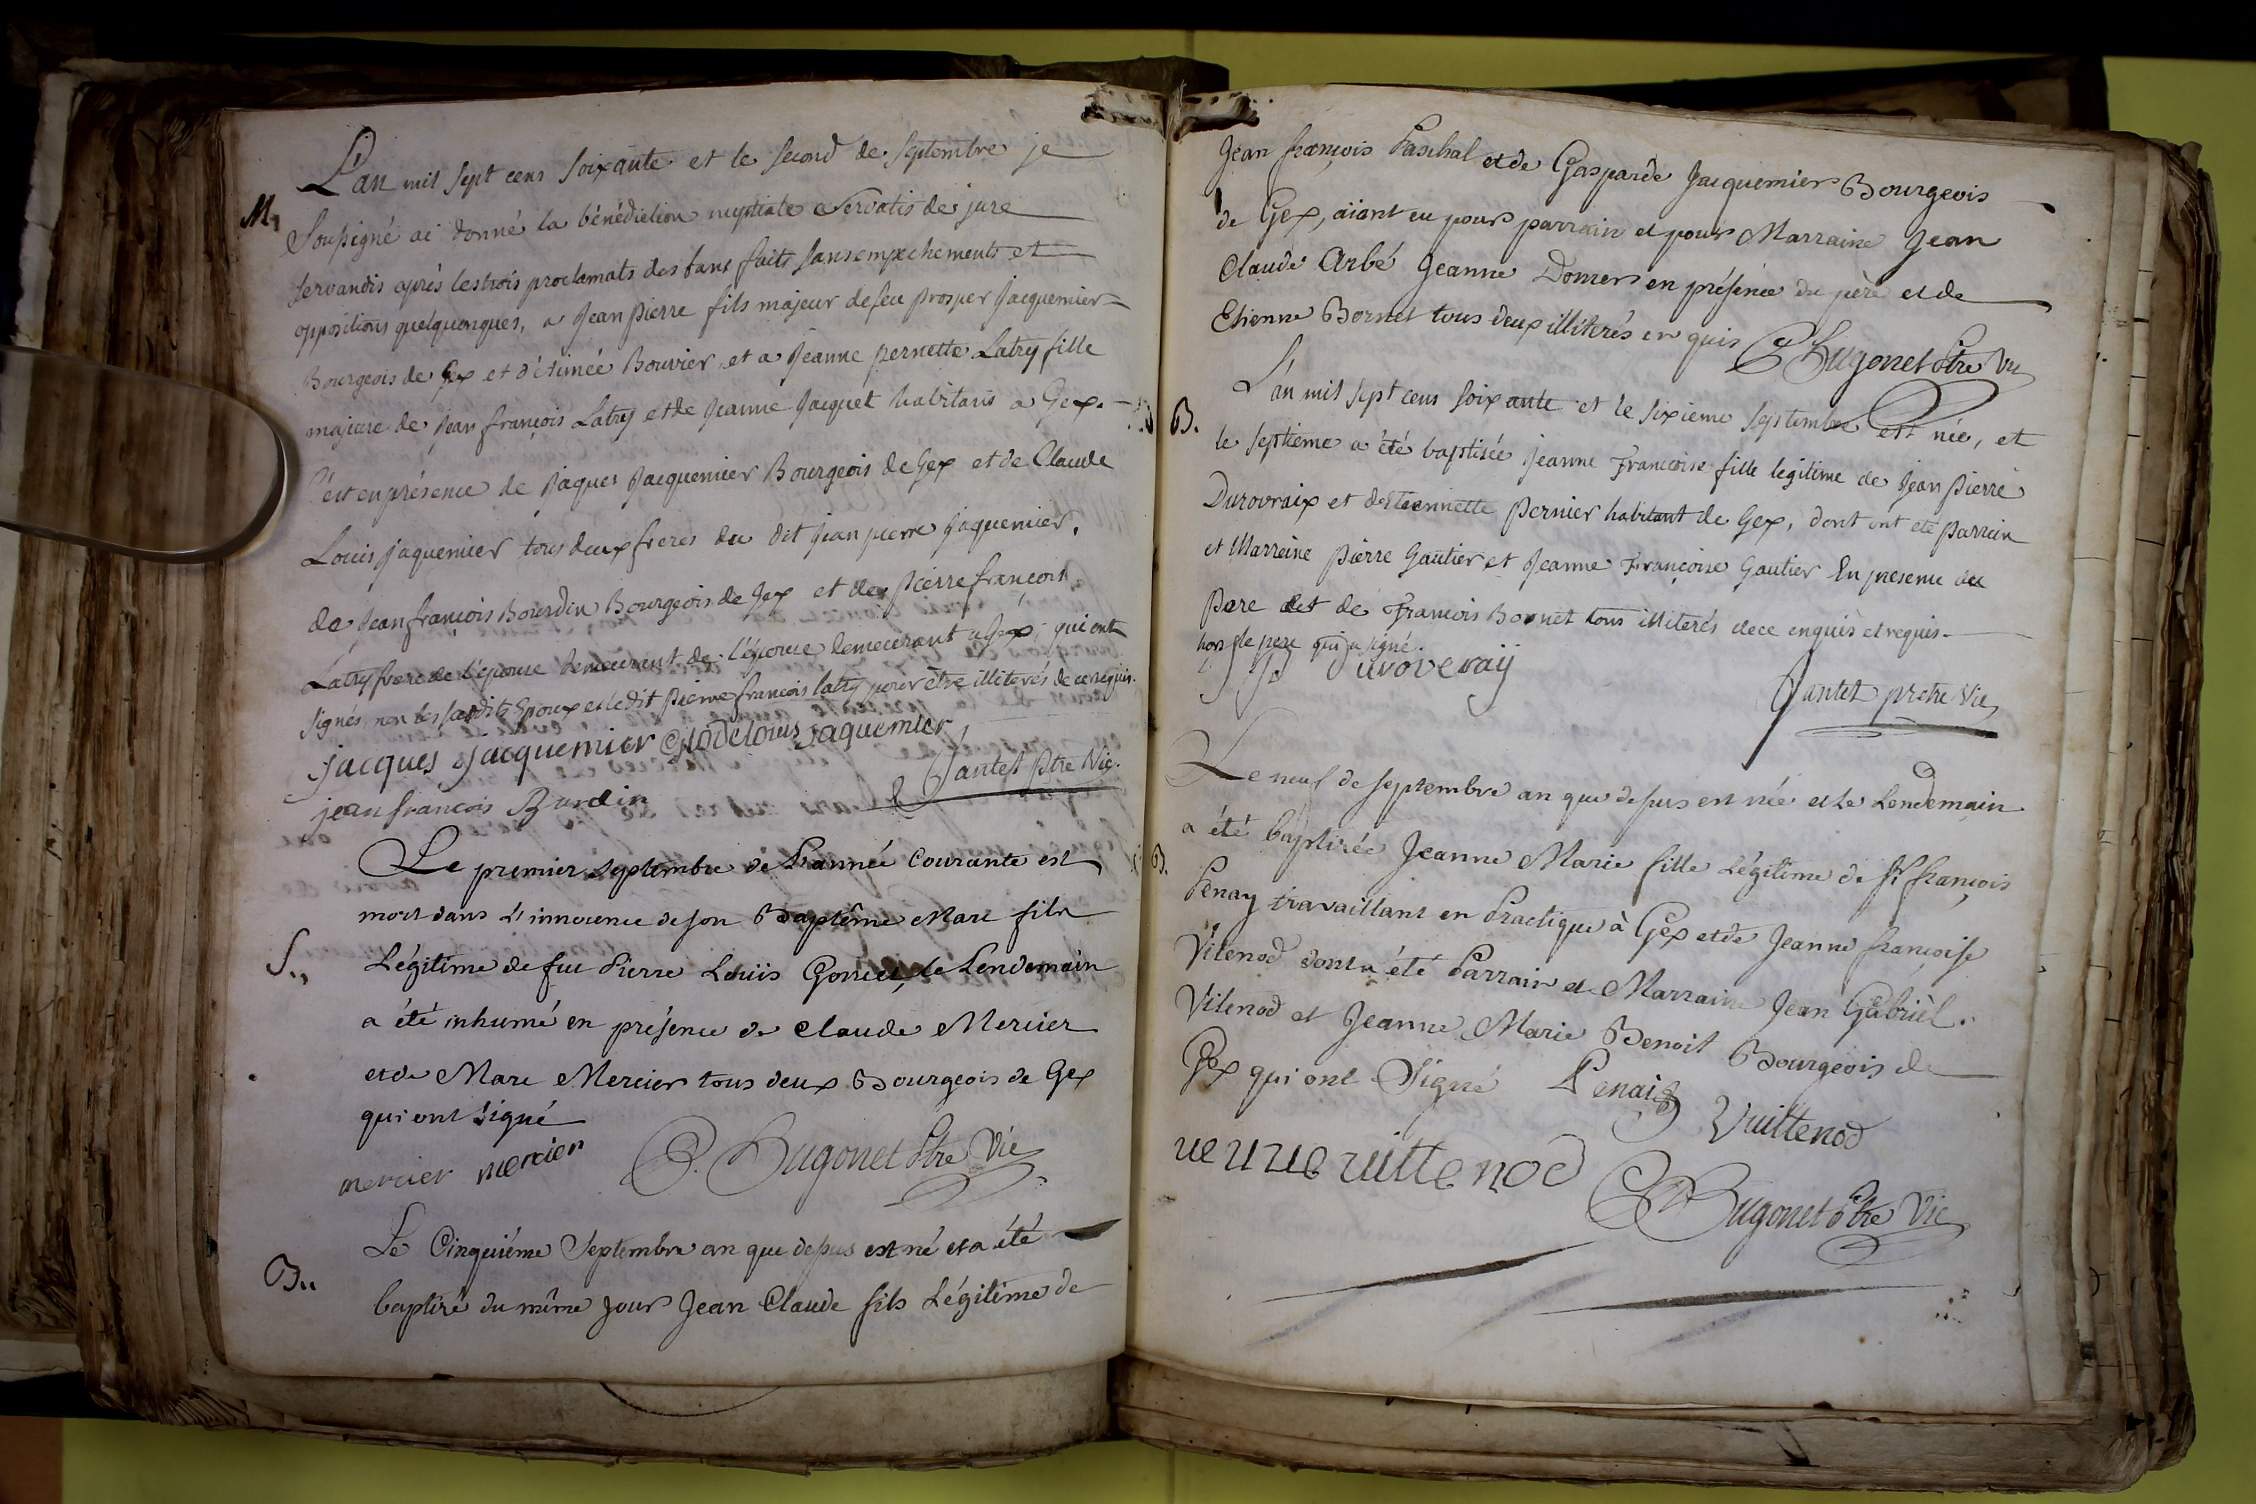 L'an mil sept cens soixante et le second de septembre je
M.
soussigné ai donné la bénédiction nuptiale servatis de jure
servandis après les trois proclamats des bans faits sans empechements et
oppositions quelquonques, a Jean pierre fils majeur de feu prosper Jacquemier
Bourgeois de Gex et d'étiméé Bouvier, et a Jeanne pernette Latry fille
majeure de Jean françois Latry et de Jeanne Jacquet habitans a Gex.
C'est en présence de Jaques Jacquemier Bourgeois de Gex et de Claude
Louis jaquemier tous deux freres du dit jean pierre jaquemier,
de Jean françois Bourdin Bourgeois de Gex et de pierre françois
Latry frere de l'épouse demeurant de l'épouse demeurant a Gex; qui ont
signés non les susdits Epoux et le dit pierre françois latry pour être illiterés de ce requis.
jacques jacquemier Glode louis jaquemier
jean francois Burdin
Pantet ptre Vic.
Le premier septembre de L'année Courante est
mort dans L'innocence de son Baptême Marc fils
S.
Légitime de feu Pierre Louis Gonnet, le Lendemain
a été inhumé en présence de Claude Mercier
et de Marc Mercier tous deux Bourgeois de Gex
qui ont signé
mercier mercier
C. Hugonet Ptre Vic
Le Cinquiéme Septembre an que dessus est né et a été
B.
baptisé du même jour Jean Claude fils Légitime de
Jean françois Paschal et de Gasparde Jacquemier Bourgeois
de Gex, aiant eu pour parrain et pour Marraine Jean
Claude Arbé Jeanne Domer en présence du père et de
Etienne Bornet tous deux illiterés enquis
C Hugonet Ptre Vic
L'an mil sept cens soixante et le sixieme septembre est née, et
B.
le septieme a été baptisée jeanne Françoise fille legitime de Jean pierre
Durovraix et d'Etiennette Pernier habitant de Gex, dont ont eté parrein
et Marreine pierre Gautier et Jeanne Françoise Gautier En presence du
pere et de François Bornet tous illiterés de ce enquis et requis
hors le pere qui a signé.
Duroveray
Pantet pretre Vic,
Le neuf de septembre an que dessus est née et le Lendemain
B.
a été baptisée Jeanne Marie fille Légitime de Sr françois
Penay travaillant en Practique à Gex et de Jeanne françoise
Vilenod dont a été Parrain et Marraine Jean Gabriel
Vilenod et Jeanne Marie Benoit Bourgeois de
Gex qui ont Signé
Penais
Vuittenod
veuve vuittenod
C Hugonet Ptre Vic